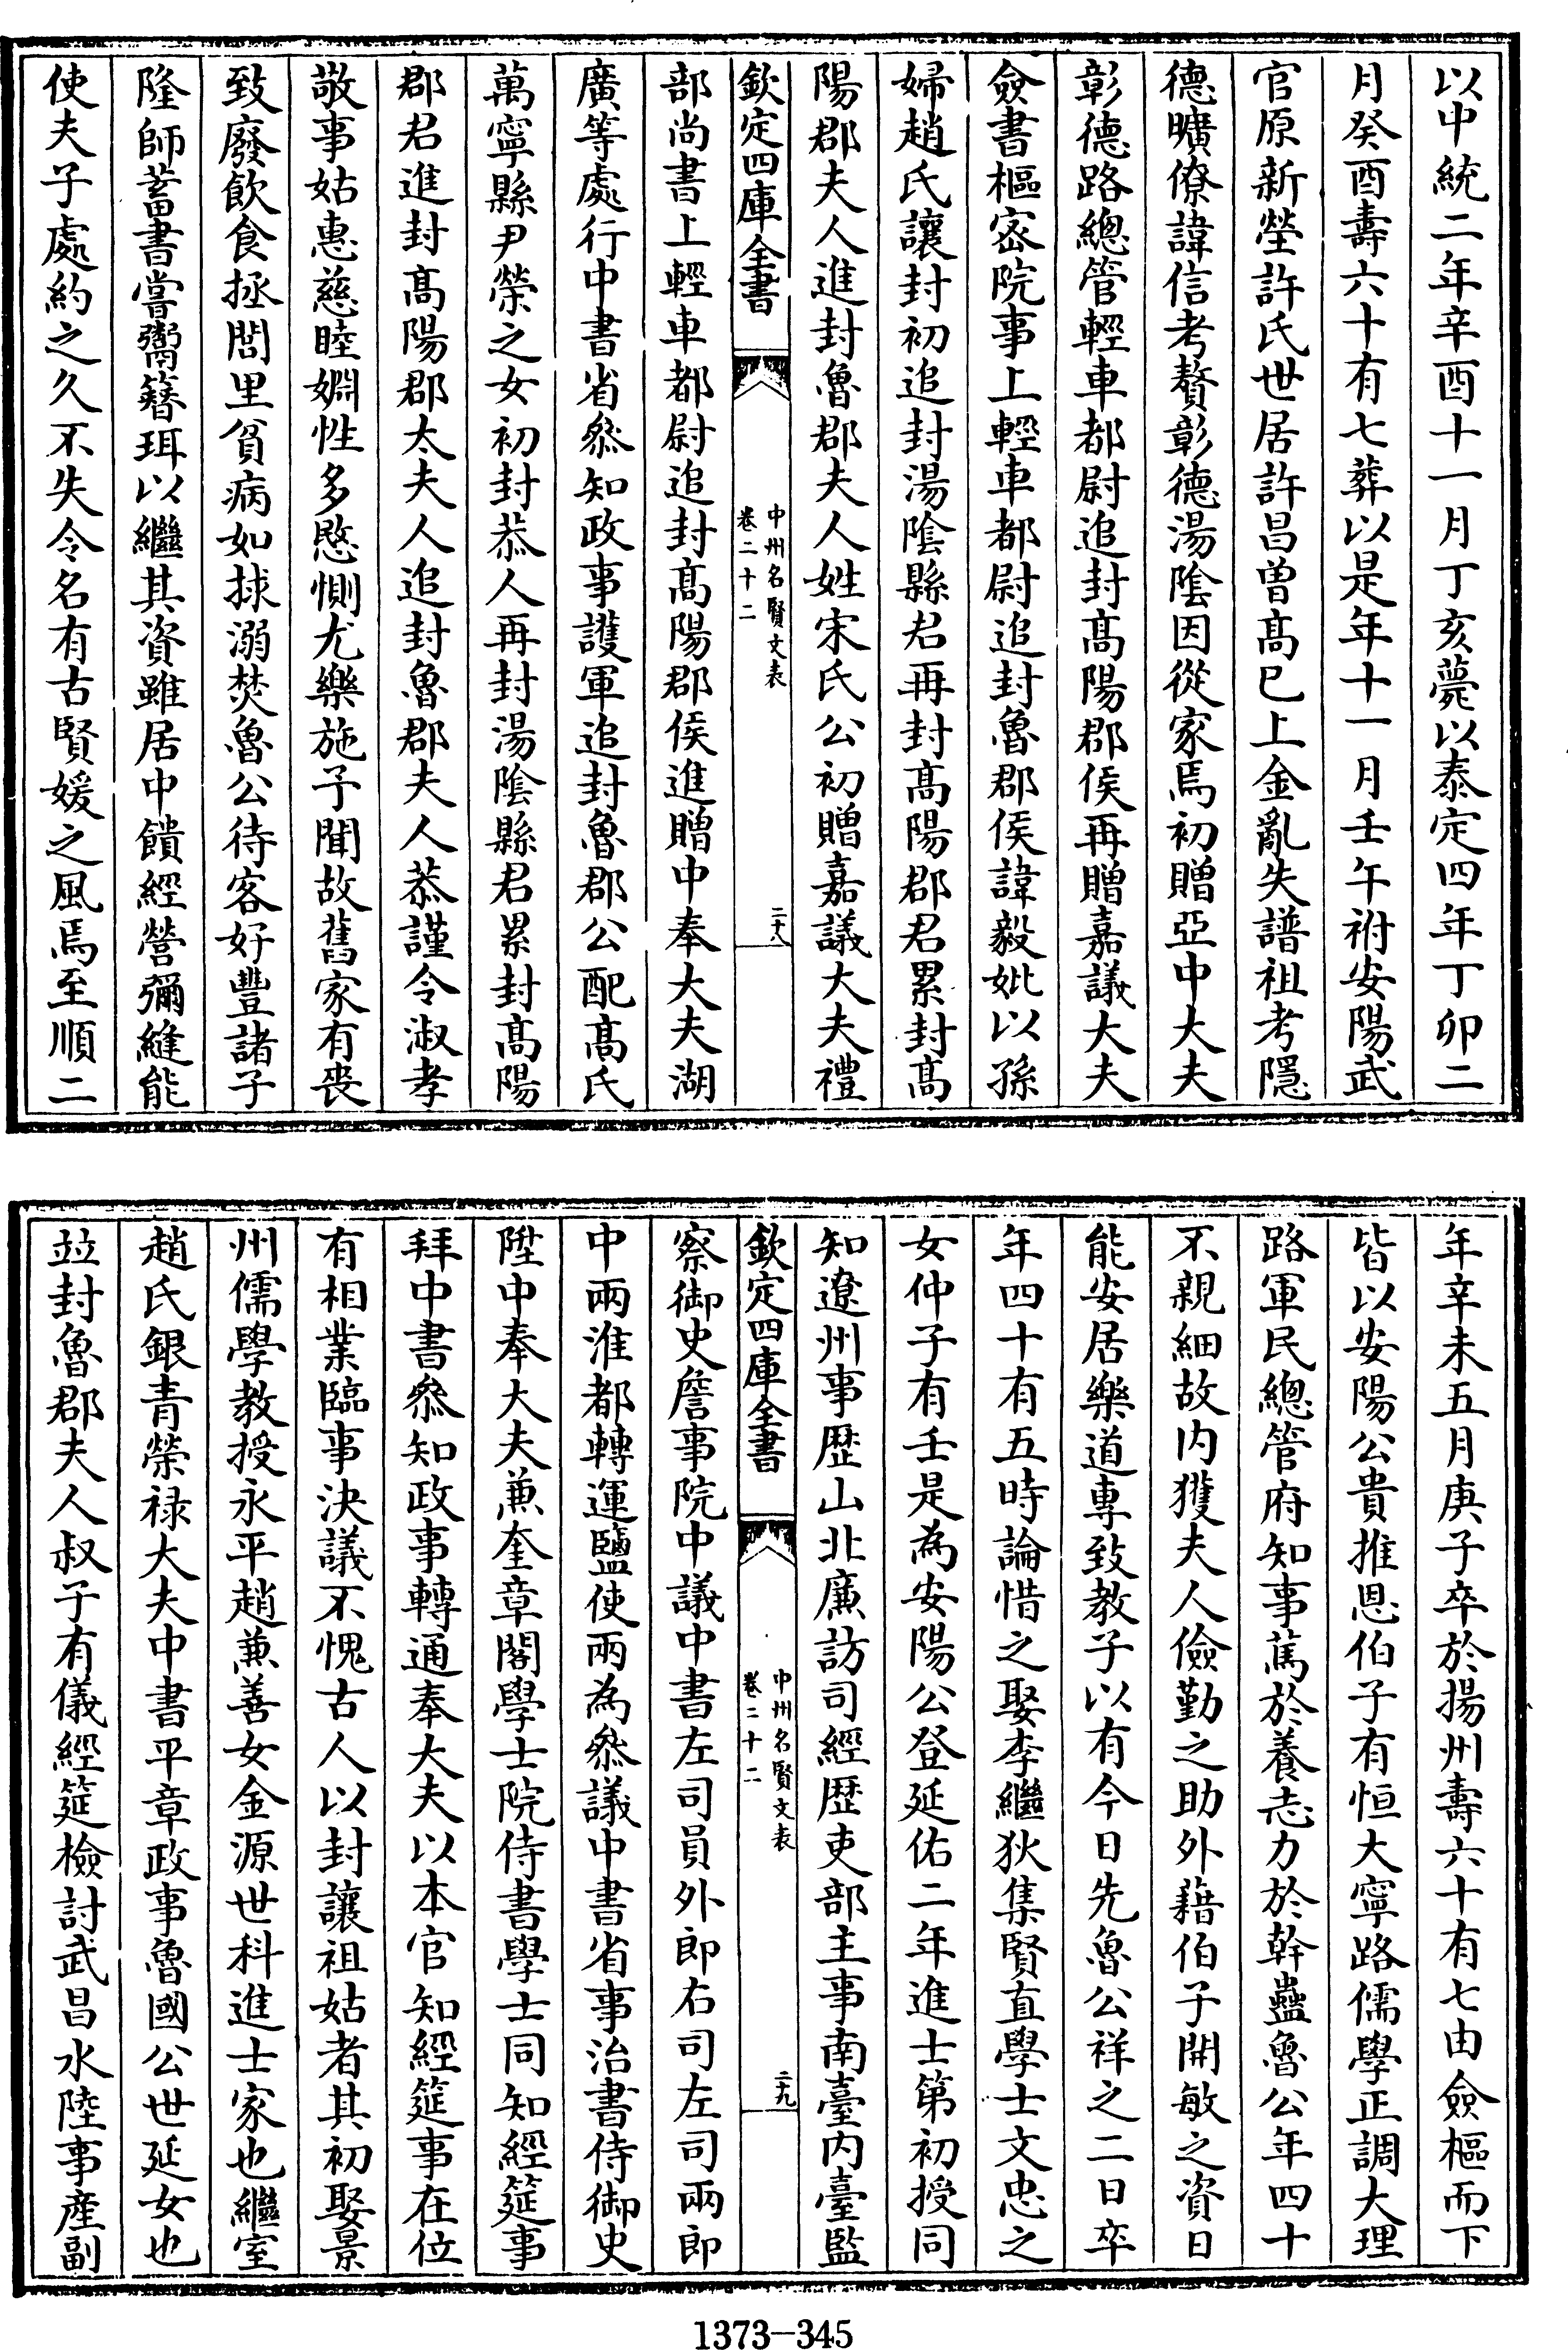 以中統二年辛酉十一月丁亥薨以泰定四年丁卯二
月癸酉壽六十有七葬以是年十一月壬午祔安陽武
官原新塋許氏世居許昌曾髙已上金亂失譜祖考隱
德曠僚諱信考贅彰德湯陰因從家焉初贈亞中大夫
彰德路總管輕車都尉追封髙陽郡侯再贈嘉議大夫
僉書樞宻院事上輕車都尉追封魯郡侯諱毅妣以孫
婦趙氏讓封初追封湯陰縣君再封髙陽郡君累封髙
陽郡夫人進封魯郡夫人姓宋氏公初贈嘉議大夫禮
欽定四庫全書
中州名賢文表
卷二十二
二十八
部尚書上輕車都尉追封髙陽郡侯進贈中奉大夫湖
廣等處行中書省叅知政事護軍追封魯郡公配髙氏
萬寧縣尹榮之女初封恭人再封湯陰縣君累封髙陽
郡君進封髙陽郡太夫人追封魯郡夫人恭謹令淑孝
敬事姑惠慈睦婣性多愍惻尤樂施予聞故舊家有喪
致廢飲食拯閭里貧病如捄溺焚魯公待客好豐諸子
隆師蓄書嘗鬻簮珥以繼其資雖居中饋經營彌縫能
使夫子處約之久不失令名有古賢媛之風焉至順二
年辛未五月庚子卒於揚州壽六十有七由僉樞而下
皆以安陽公貴推恩伯子有恒大寧路儒學正調大理
路軍民總管府知事篤於養志力於幹蠱魯公年四十
不親細故内獲夫人儉勤之助外藉伯子開敏之資日
能安居樂道専致教子以有今日先魯公祥之二日卒
年四十有五時論惜之娶李繼狄集賢直學士文忠之
女仲子有壬是為安陽公登延佑二年進士第初授同
知遼州事歴山北廉訪司經歴吏部主事南臺内臺監
欽定四庫全書
中州名賢文表
卷二十二
二十九
察御史詹事院中議中書左司員外郎右司左司兩郎
中兩淮都轉運鹽使兩為叅議中書省事治書侍御史
陞中奉大夫兼奎章閣學士院侍書學士同知經筵事
拜中書叅知政事轉通奉大夫以本官知經筵事在位
有相業臨事決議不愧古人以封讓祖姑者其初娶景
州儒學教授永平趙兼善女金源世科進士家也繼室
趙氏銀青榮禄大夫中書平章政事魯國公世延女也
竝封魯郡夫人叔子有儀經筵檢討武昌水陸事産副
1373-345